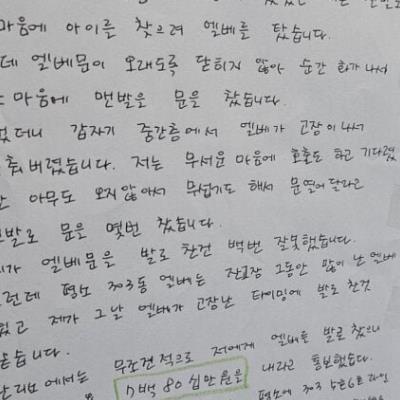 마음에 아이를 찾으려 엘베를 탔습니다.
데 엘베문이 오래도록 닫히지 않아 순간 화가 나서
마음에 맨발로 문을 찼습니다.
었더니 갑자기 중간층에서 엘베가 고장이 나서
춰버렸습니다. 저는 무서운 마음에 호출도 하고 기다렸
아무도 오지 않아서 무섭기도 해서 문열어달라고
발로 문을 몇번 찼습니다.
가 엘베문을 발로 찬건 백번 잘못했습니다.
런데 평소 303동 엘베는 잔고장 그동안 많이 난 엘베
었고 제가 그날 엘베가 고장난 타이밍에 발로 찬것
습니다.
에서는 무조건적으로 저에게 엘베를 발로 찼으니
7백 80 십만원을 내라고 통보했습니다.
평소에 303 5호6호라인